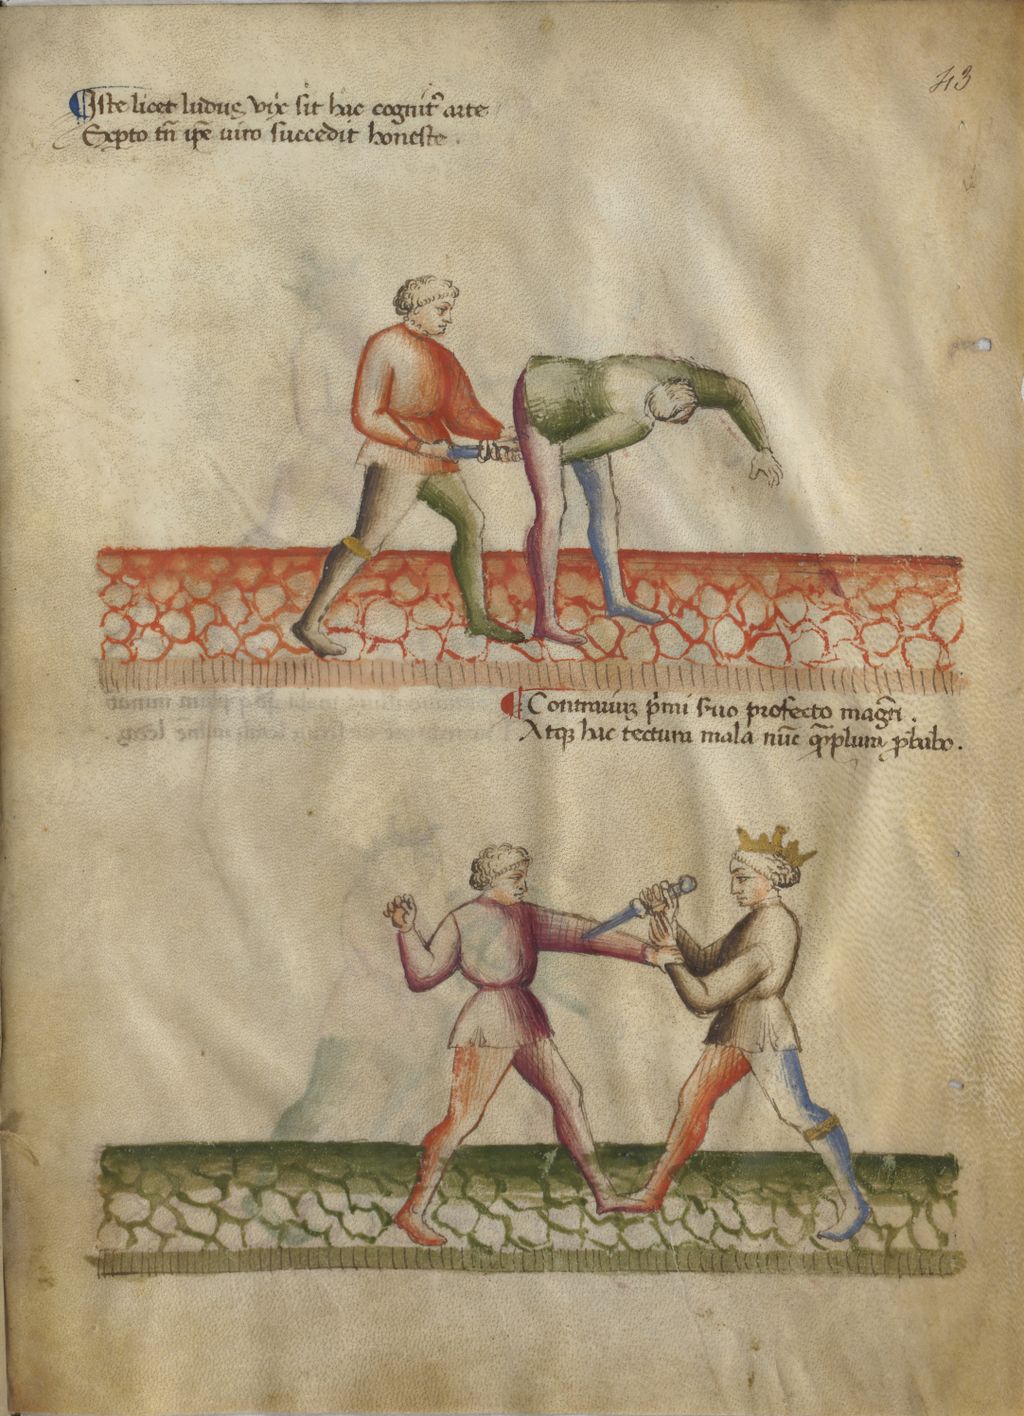 43
Iste licet ludus vix sit hac cognit' arte
Expto tn̄ ip̄e viro succedit honeste .
Contrarius p̄mi suo profecto magr̄i .
Atq3 hac tectura mala nūc plura .